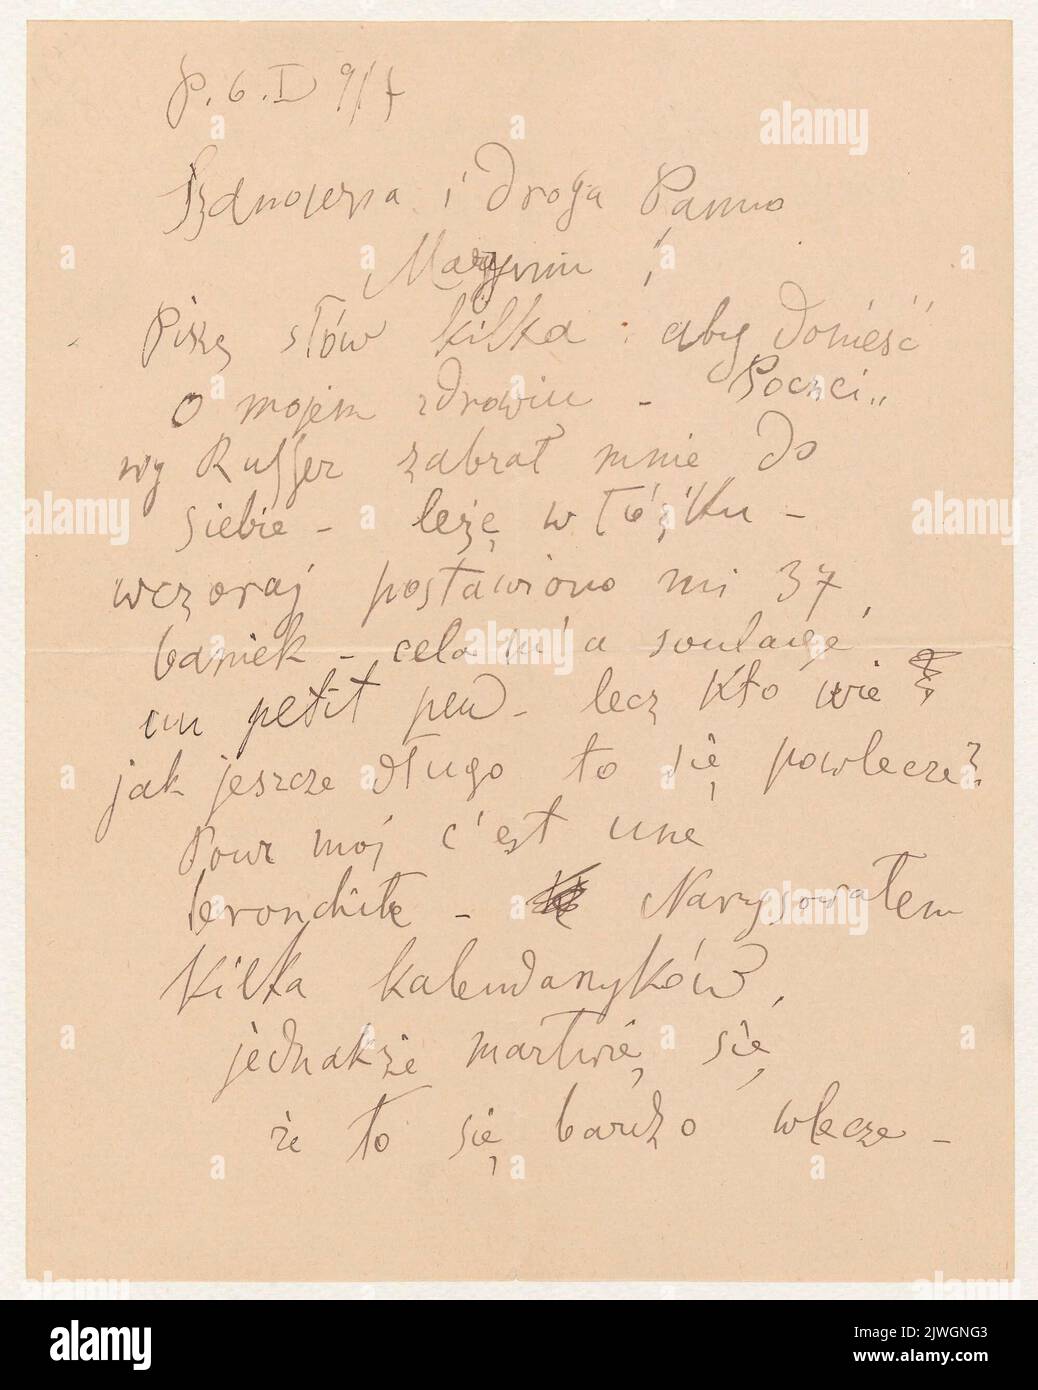 P. 6. I 917
Szanowna i Droga Panno
Maryniu!
Piszę słów kilka aby donieść
o mojem zdrowiu - Poczci„
wy Ruffer zabrał mnie do
siebie - leżę w łóżku -
wczoraj postawiono mi 37
baniek - cela m'a soulagé
un petit peu - lecz kto wie
jak jeszcze długo to się powlecze?
Pour moj c'est une
bronchite - Narysowałem
kilka kalendarzyków,
jednakże martwię się
że to się bardzo wlecze -
alamy
Image ID: 2JWGNG3
www.alamy.com